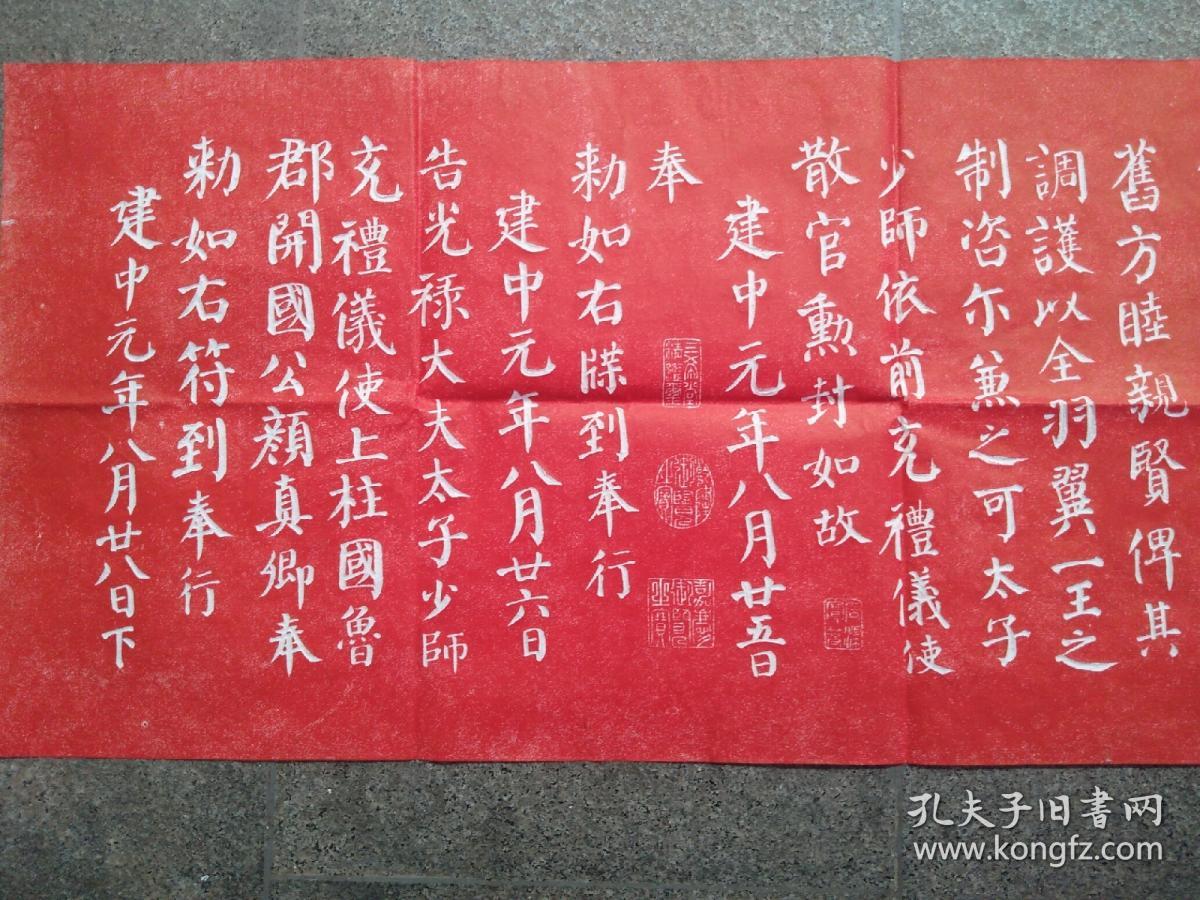 舊方睦親賢俾其
調護以全羽翼一王之
制咨尒兼之可太子
少師依前充禮儀使
散官勳封如故
建中元年八月廿五日
奉
勅如右牒到奉行
建中元年八月廿六日
告光禄大夫太子少師
充禮儀使上柱國魯
郡開國公顔真卿奉
勅如右符到奉行
建中元年八月廿八日下
三希堂精鑑璽
乾隆御覽之寶
嘉慶御覽之寶
孔夫子旧书网
www.kongfz.com